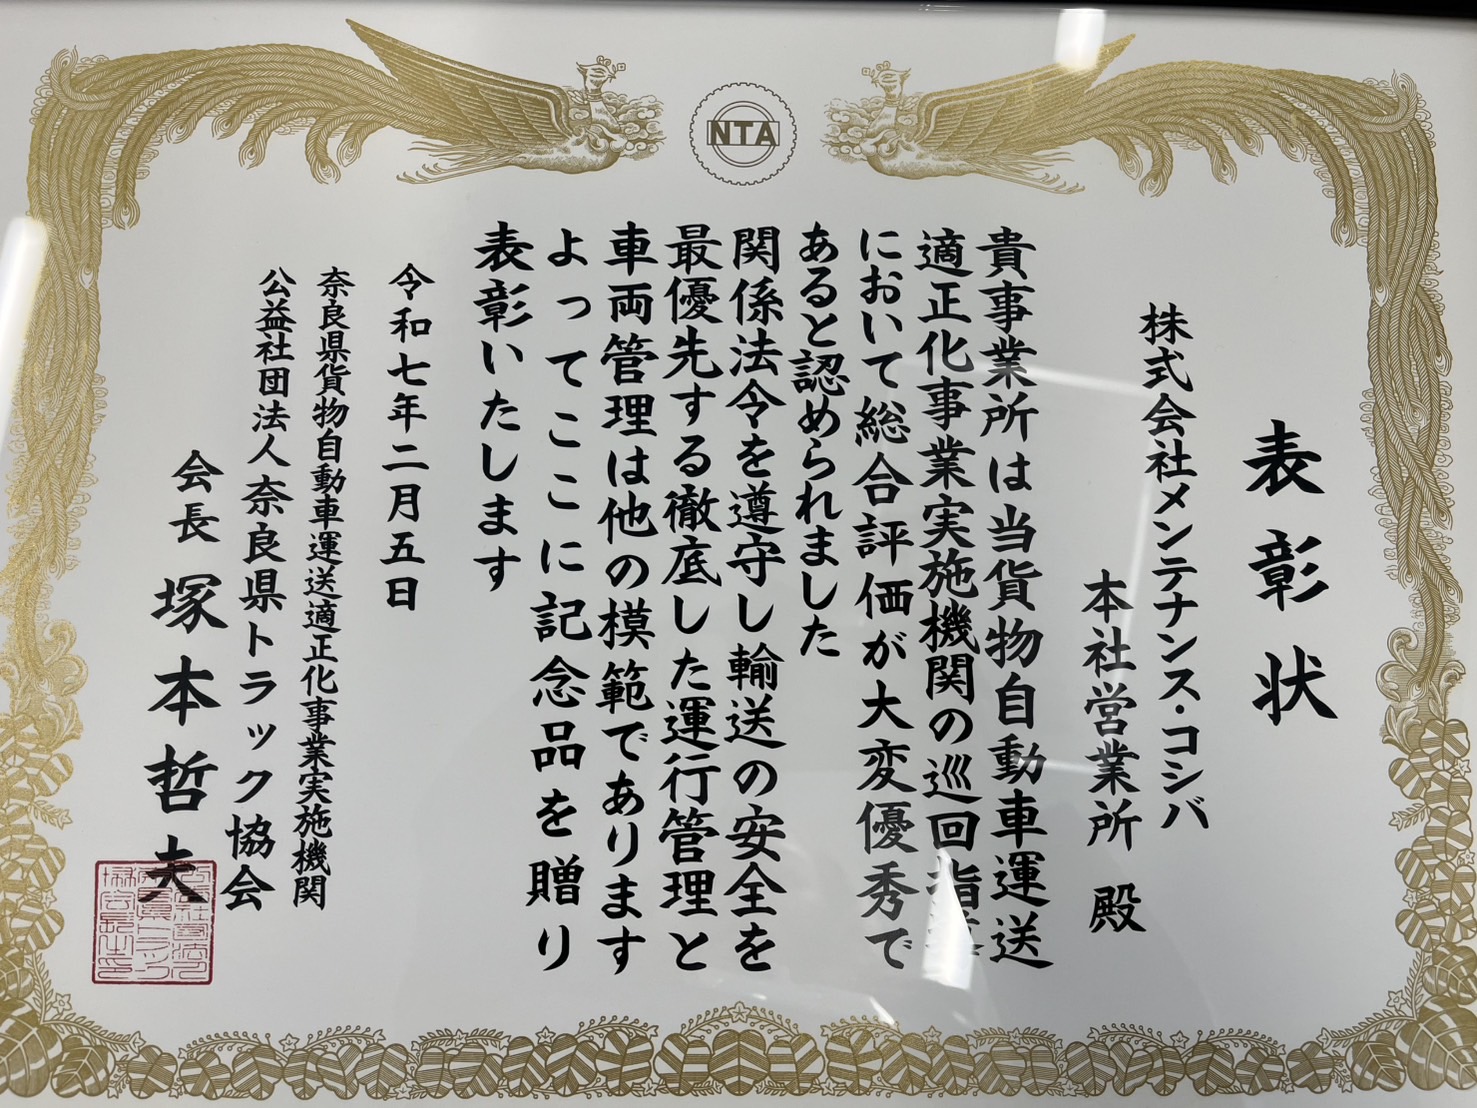 NTA
表彰状
株式会社メンテナンス・コシバ
本社営業所 殿
貴事業所は当貨物自動車運送
適正化事業実施機関の巡回指導
において総合評価が大変優秀で
あると認められました
関係法令を遵守し輸送の安全を
最優先する徹底した運行管理と
車両管理は他の模範であります
よってここに記念品を贈り
表彰いたします
令和七年二月五日
奈良県貨物自動車運送適正化事業実施機関
公益社団法人奈良県トラック協会
会長 塚本哲夫